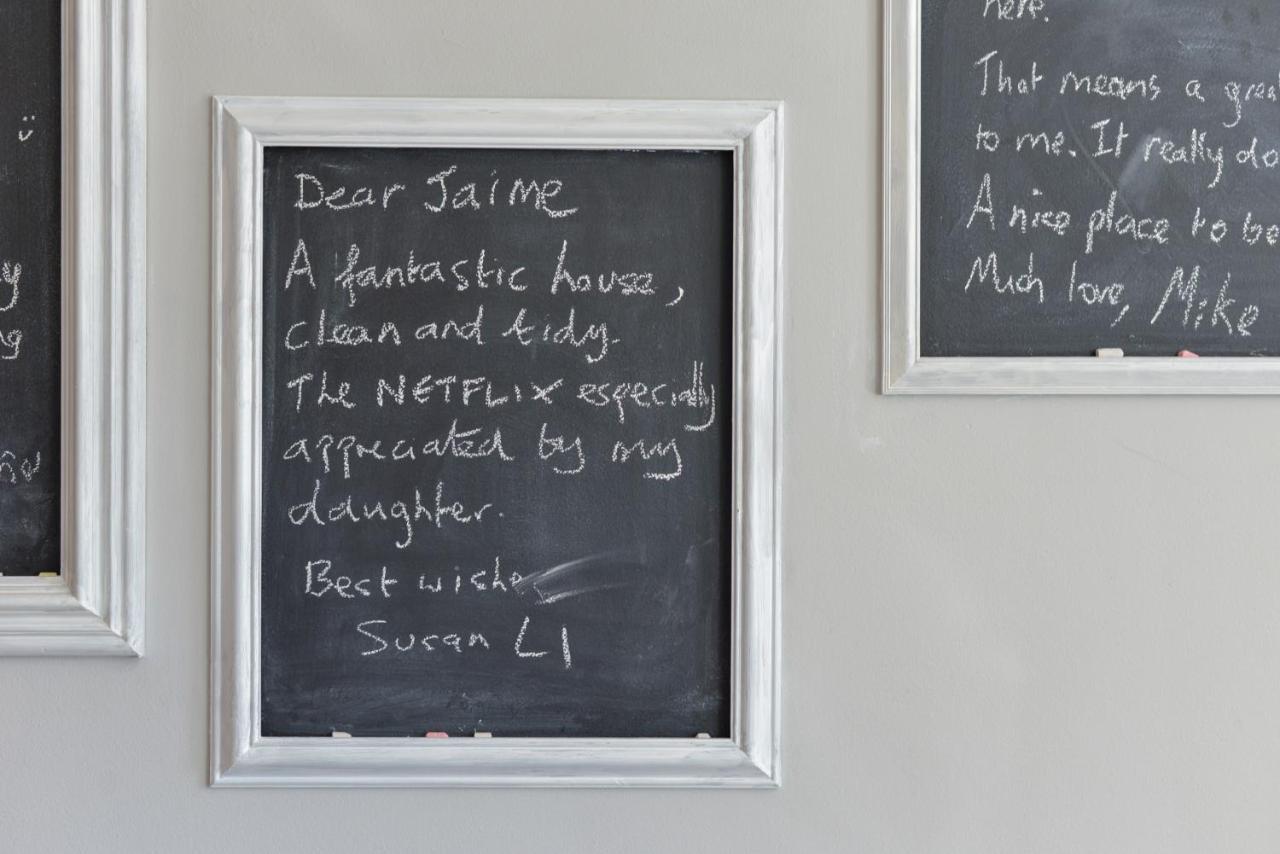 Dear Jaime
A fantastic house,
clean and tidy.
The NETFLIX especially
appreciated by my
daughter.
Best wishe
Susan LI
here.
That means a great
to me. It really do
A nice place to be
Much love, Mike